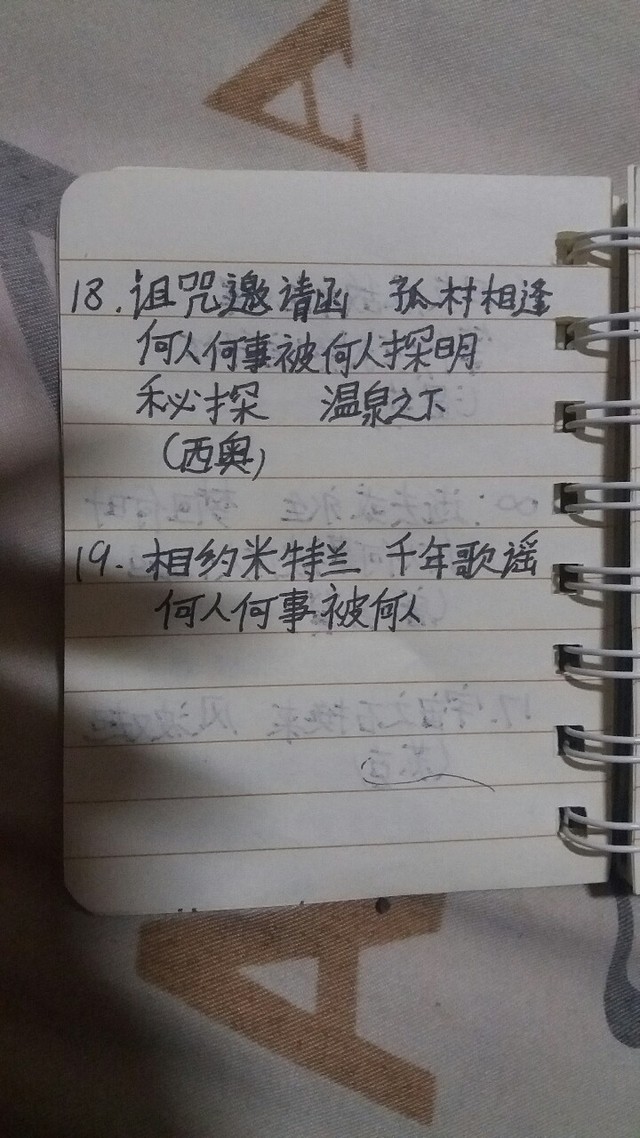 18. 诅咒邀请函 孤村相逢
何人何事被何人探明
秘探 温泉之下
(西奥)
19. 相约米特兰 千年歌谣
何人何事被何人
A
A